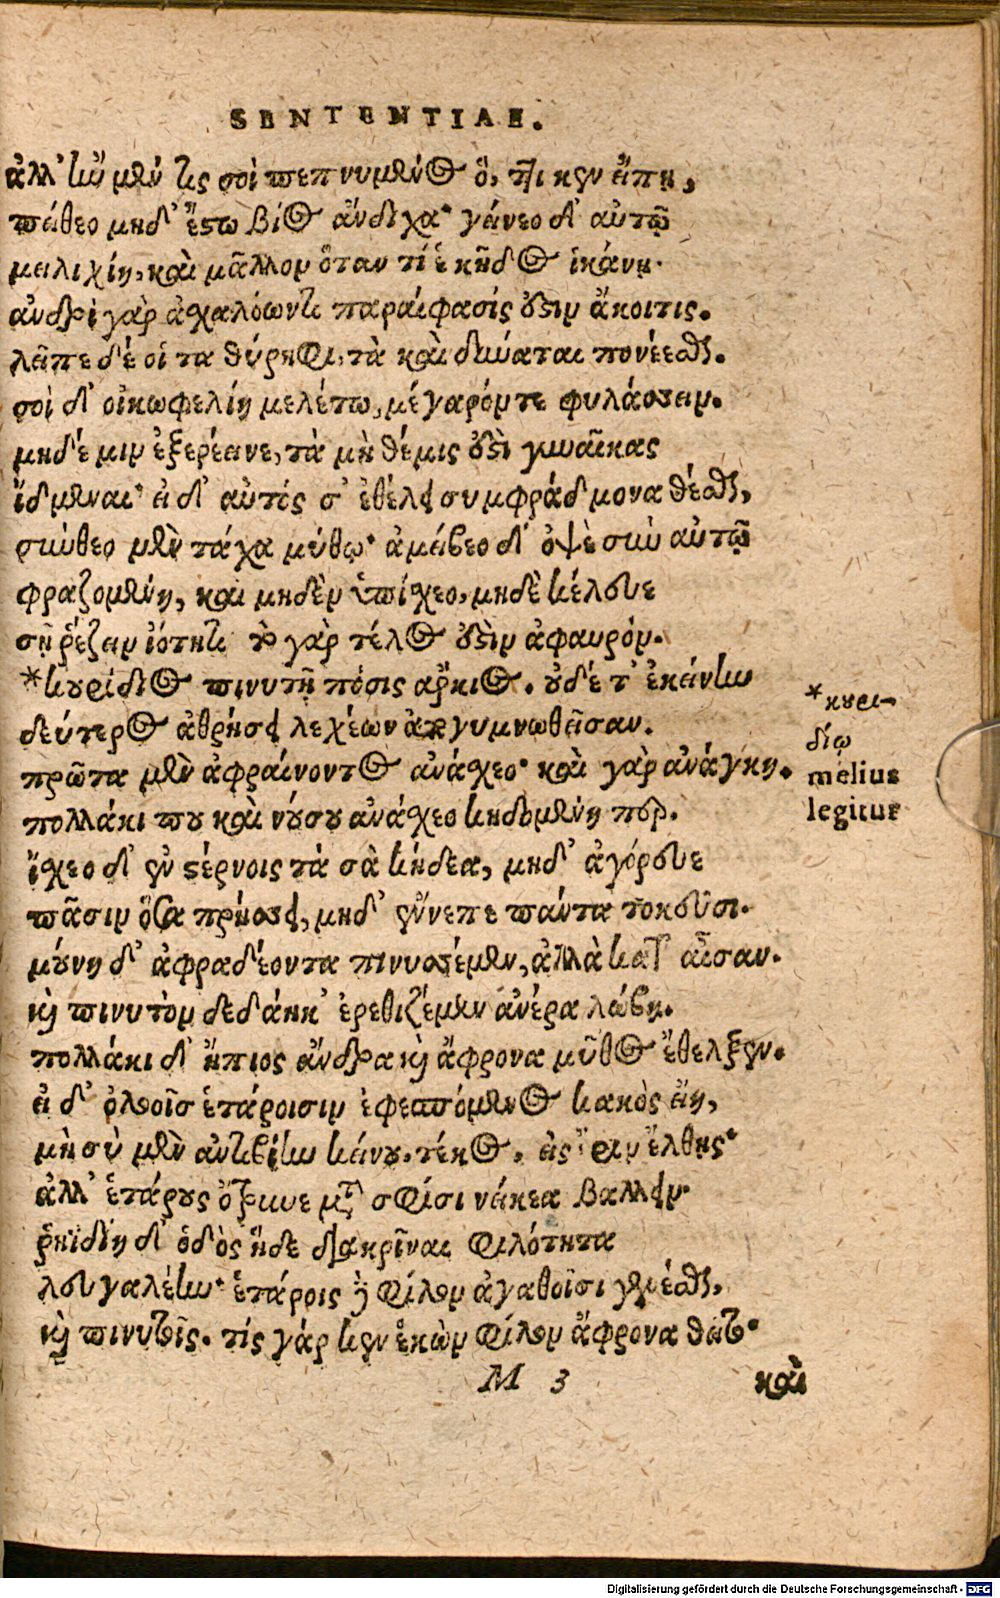 SENTENTIAE.
ἀλλ' ἢν μέν τις σοὶ πεπνυμένος ὅ, τι κεν εἴπῃ,
πείθεο μηδ' ἔστω βίος ἄνδιχα· γείνεο δ' αὐτῷ
μειλιχίη, καὶ μᾶλλον ὅταν τί ἑ κῆδος ἱκάνῃ·
ἀνδρὶ γὰρ ἀχαλόωντι παραίφασίς ἐστιν ἄκοιτις.
λεῖπε δέ οἱ τὰ θύρηφι, τὰ καὶ δύναται πονέεσθαι.
σοὶ δ' οἰκωφελίη μελέτω, μέγαρόν τε φυλάσσειν.
μηδέ μιν ἐξερέεινε, τὰ μὴ θέμις ἐστὶ γυναῖκας
ἴδμεναι· εἰ δ' αὐτός σ' ἐθέλει συμφράδμονα θέσθαι,
σκύθεο μὲν τάχα μύθῳ· ἀμείβεο δ' ὀψὲ σὺν αὐτῷ
φραζομένη, καὶ μηδὲν ὑπίσχεο, μηδὲ κέλευε
σῇ ῥέζειν ἰότητι τὸ γὰρ τέλος ἐστὶν ἀφαυρόν.
*κουρίδιος πινυτῇ πόσις ἄρκιος. οὐδέ τ' ἐκείνην
δεύτερος ἀθρήσει λεχέων ἀπογυμνωθεῖσαν.
πρῶτα μὲν ἀφραίνοντος ἀνάσχεο· καὶ γὰρ ἀνάγκη.
πολλάκι που καὶ νούσου ἀνάσχεο κηδομένη περ.
ἴσχεο δ' ἐν στέρνοις τὰ σὰ κήδεα, μηδ' ἀγόρευε
πᾶσιν ὅσα πρήσσει, μηδ' ἔννεπε πάντα τοκεῦσι.
μούνη δ' ἀφραδέοντα πινυσσέμεν, ἀλλὰ κατ' αἶσαν.
καὶ πινυτὸν δεδάηκ' ἐρεθιζέμεν ἀνέρα λώβη.
πολλάκι δ' ἤπιος ἄνδρα καὶ ἄφρονα μῦθος ἔθελξεν.
εἰ δ' ὀλοοῖσ ἑτάροισιν ἐφεσπόμενος κακὸς εἴη,
μὴ σὺ μὲν ἀντιβίην κείνου, τέκος, εἰς ἔριν ἔλθῃς·
ἀλλ' ἑτάρους ὄτρυνε μετὰ σφίσι νείκεα βαλλειν·
ῥηϊδίη δ' ὁδὸς ἥδε διακρῖναι φιλότητα
λευγαλέην· ἑτάροις φίλον ἀγαθοῖσι γενέσθαι,
καὶ πινυτοῖς. τίς γάρ κεν ἑκὼν φίλον ἄφρονα θεῖτο·
*κουρι-
δίῳ
melius
legitur
M 3
καὶ
Digitalisierung gefördert durch die Deutsche Forschungsgemeinschaft - DFG